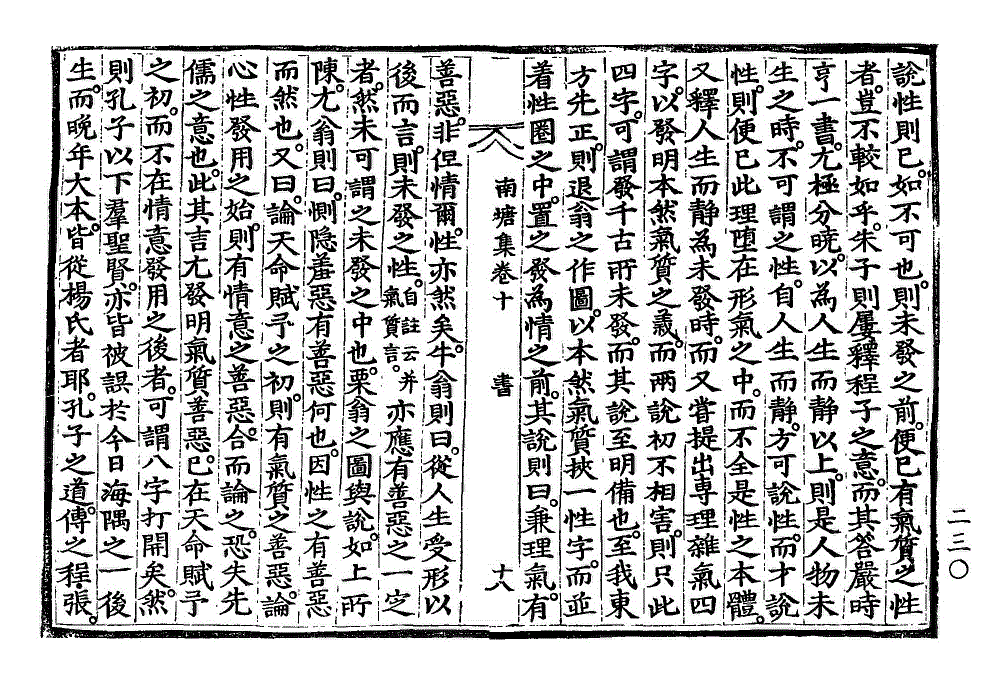 說性則已。如不可也。則未發之前。便已有氣質之性
者。豈不較如乎。朱子則屢釋程子之意。而其答嚴時
亨一書。尤極分曉。以爲人生而靜以上。則是人物未
生之時。不可謂之性。自人生而靜。方可說性。而才說
性。則便已此理墮在形氣之中。而不全是性之本體。
又釋人生而靜爲未發時。而又嘗提出專理雜氣四
字。以發明本然氣質之義。而兩說初不相害。則只此
四字。可謂發千古所未發。而其說至明備也。至我東
方先正。則退翁之作圖。以本然氣質挾一性字。而並
着性圈之中。置之發爲情之前。其說則曰。兼理氣。有
南塘集卷十 書 十八
善惡。非但情爾。性亦然矣。牛翁則曰。從人生受形以
後而言。則未發之性。自註云並氣質言。亦應有善惡之一定
者。然未可謂之未發之中也。栗翁之圖與說。如上所
陳。尤翁則曰。惻隱羞惡有善惡何也。因性之有善惡
而然也。又曰。論天命賦予之初。則有氣質之善惡。論
心性發用之始。則有情意之善惡。合而論之。恐失先
儒之意也。此其言尤發明氣質善惡。已在天命賦予
之初。而不在情意發用之後者。可謂八字打開矣。然
則孔子以下羣聖賢。亦皆被誤於今日海隅之一後
生。而晚年大本。皆從楊氏者耶。孔子之道。傳之程張。
二三〇